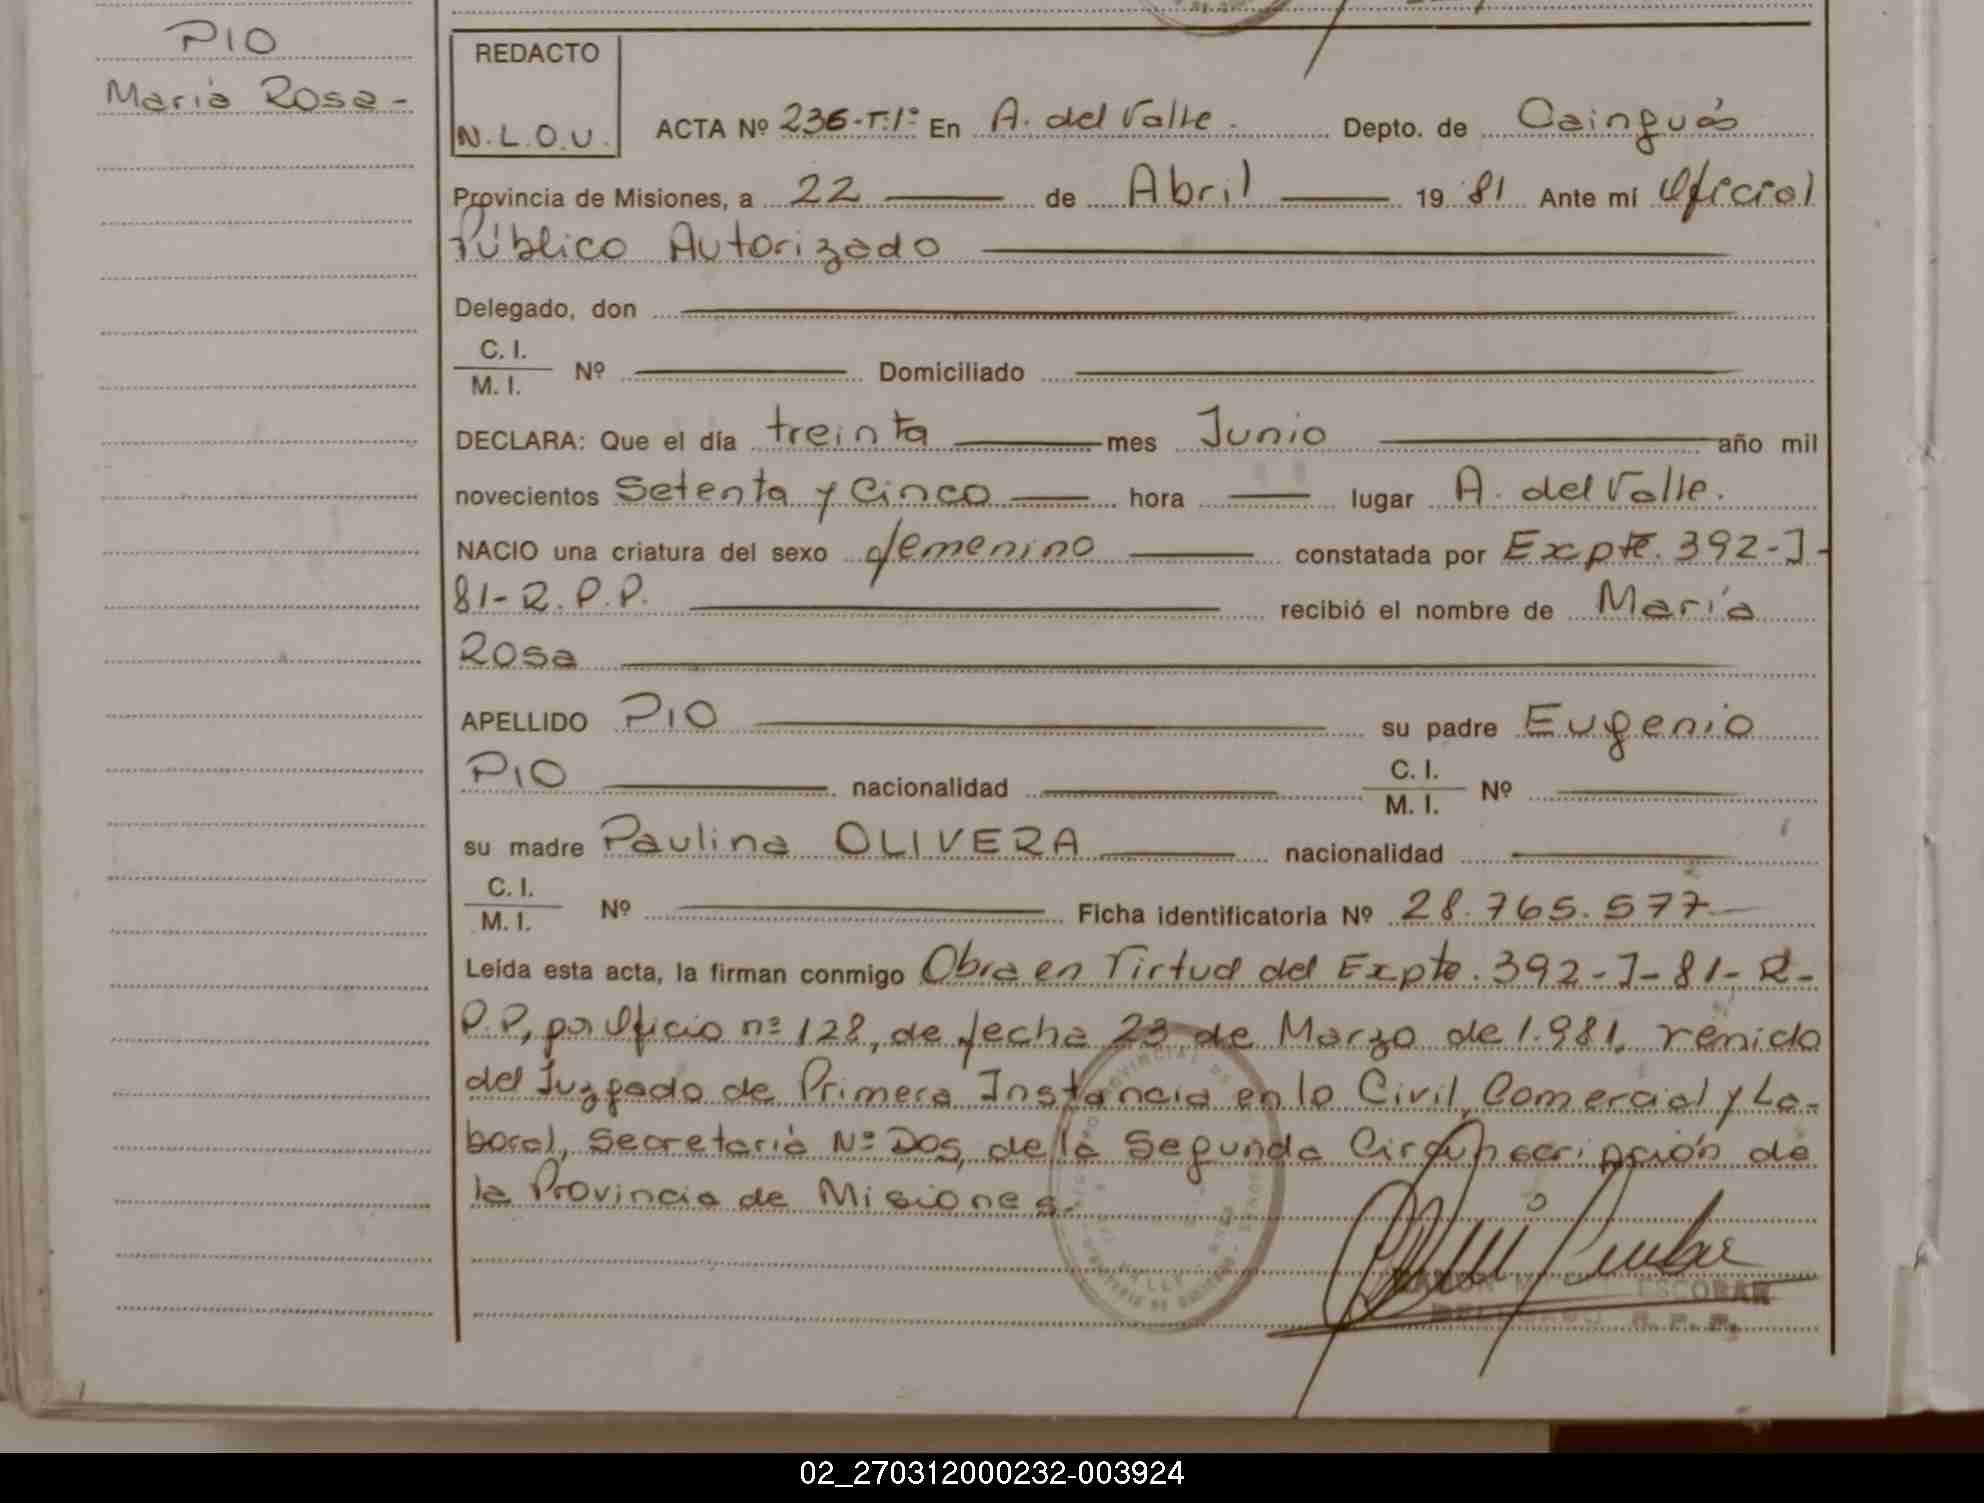 PIO
María Rosa-
REDACTO
N.L.O.U.
ACTA Nº 236-T.1º En A. del Valle. Depto. de Cainguás
Provincia de Misiones, a 22 de Abril 1981 Ante mí Oficial
Público Autorizado
Delegado, don
C. I.
M. I. Nº Domiciliado
DECLARA: Que el día treinta mes Junio año mil
novecientos Setenta y Cinco hora lugar A. del Valle.
NACIO una criatura del sexo femenino constatada por Expte. 392-J-
81-R.P.P. recibió el nombre de María
Rosa
APELLIDO PIO su padre Eugenio
PIO nacionalidad C. I. M. I. Nº
su madre Paulina OLIVERA nacionalidad
C. I.
M. I. Nº Ficha identificatoria Nº 28.765.577
Leída esta acta, la firman conmigo Obra en Virtud del Expte. 392-J-81-R-
P.P, por Oficio nº 128, de fecha 23 de Marzo de 1.981, venido
del Juzgado de Primera Instancia en lo Civil, Comercial y La-
boral, Secretaría Nº Dos, de la Segunda Circunscripción de
la Provincia de Misiones.
ESCOBAR
02_270312000232-003924